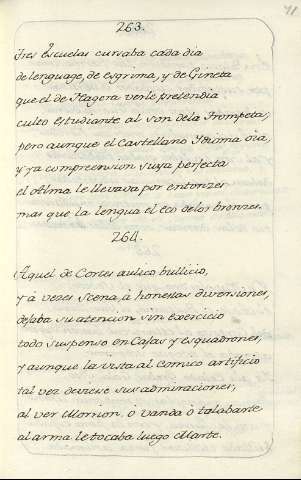 71
263.
Tres Escuelas cursaba cada dia
de lenguage, de esgrima, y de Gineta
que el de Nagera verle pretendia
culto estudiante al son dela Trompeta;
pero aunque el Castellano Ydioma oia,
y ya comprension suya perfecta
el Alma le llevava por entonzes
mas que la lengua el eco delos bronzes.
264.
Aquel de Cortes aulico bullicio,
y à vezes Scena, à honestas diversiones,
dejaba su atencion sin exercicio
todo suspenso en Cajas y esquadrones;
y aunque la vista al comico artificio
tal vez deviese sus admiraciones,
al ver Morrion, o vanda ò talabarte
al arma le tocaba luego Marte.